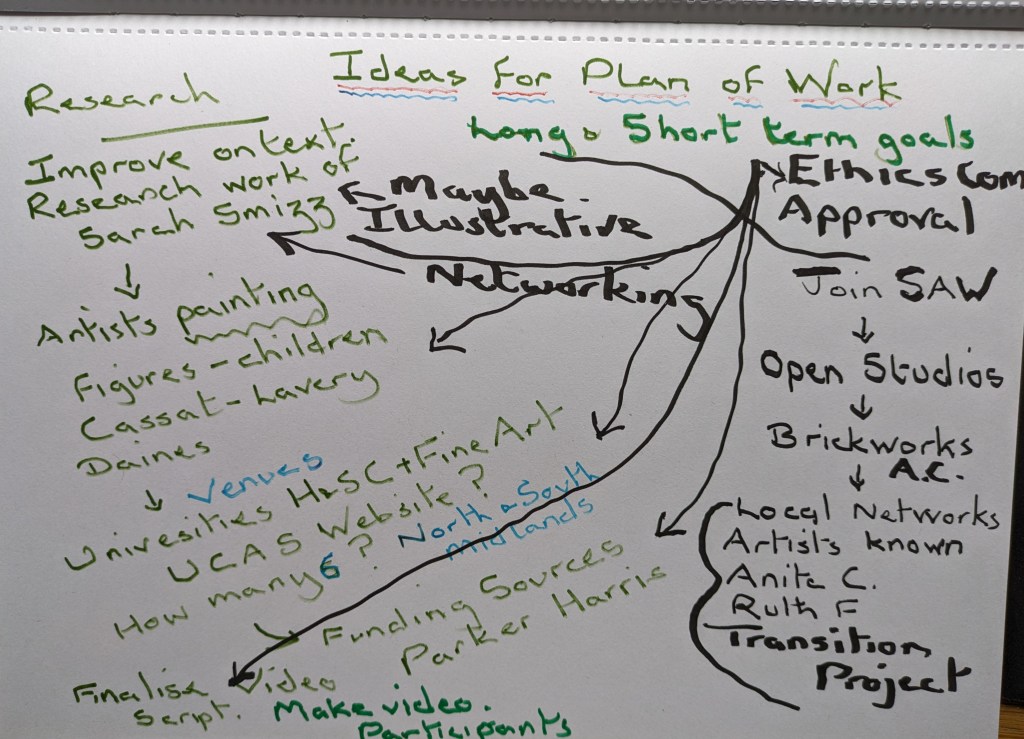 Ideas for Plan of Work
Long & Short term goals
Research
Improve on text.
Research work of
Sarah Smizz
Maybe
Illustrative
Networking
Artists painting
Figures - children
Cassat - Lavery
Daines
Venues
Univesities H&SC + Fine Art
UCAS Website?
How many 6 ?
North & South
midlands
Funding Sources
Parker Harris
Finalise Video
Script.
Make video.
Participants
Ethics Com
Approval
Join SAW
Open Studios
Brickworks
A.C.
Local Networks
Artists known
Anita C.
Ruth F
Transition
Project